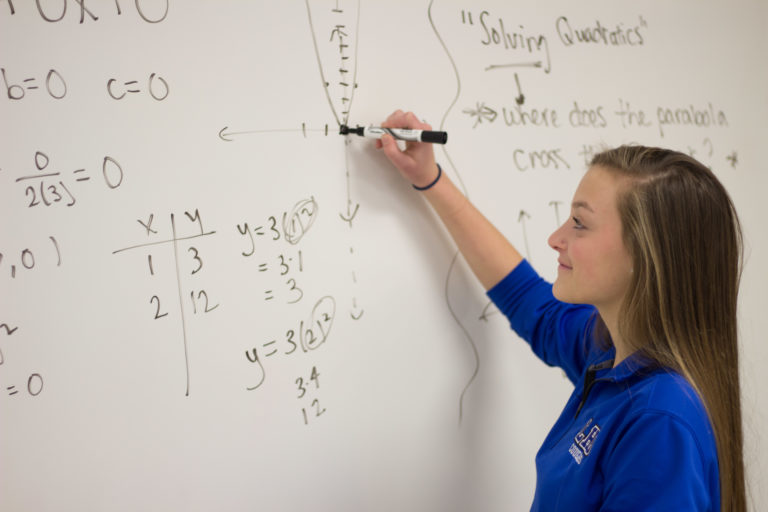 b=0 c=0
0
2(3) = 0
,0)
=0
x y
1 3
2 12
y=3(1)²
=3·1
=3
y=3(2)²
3·4
12
"Solving Quadratics"
where does the parabola
cross